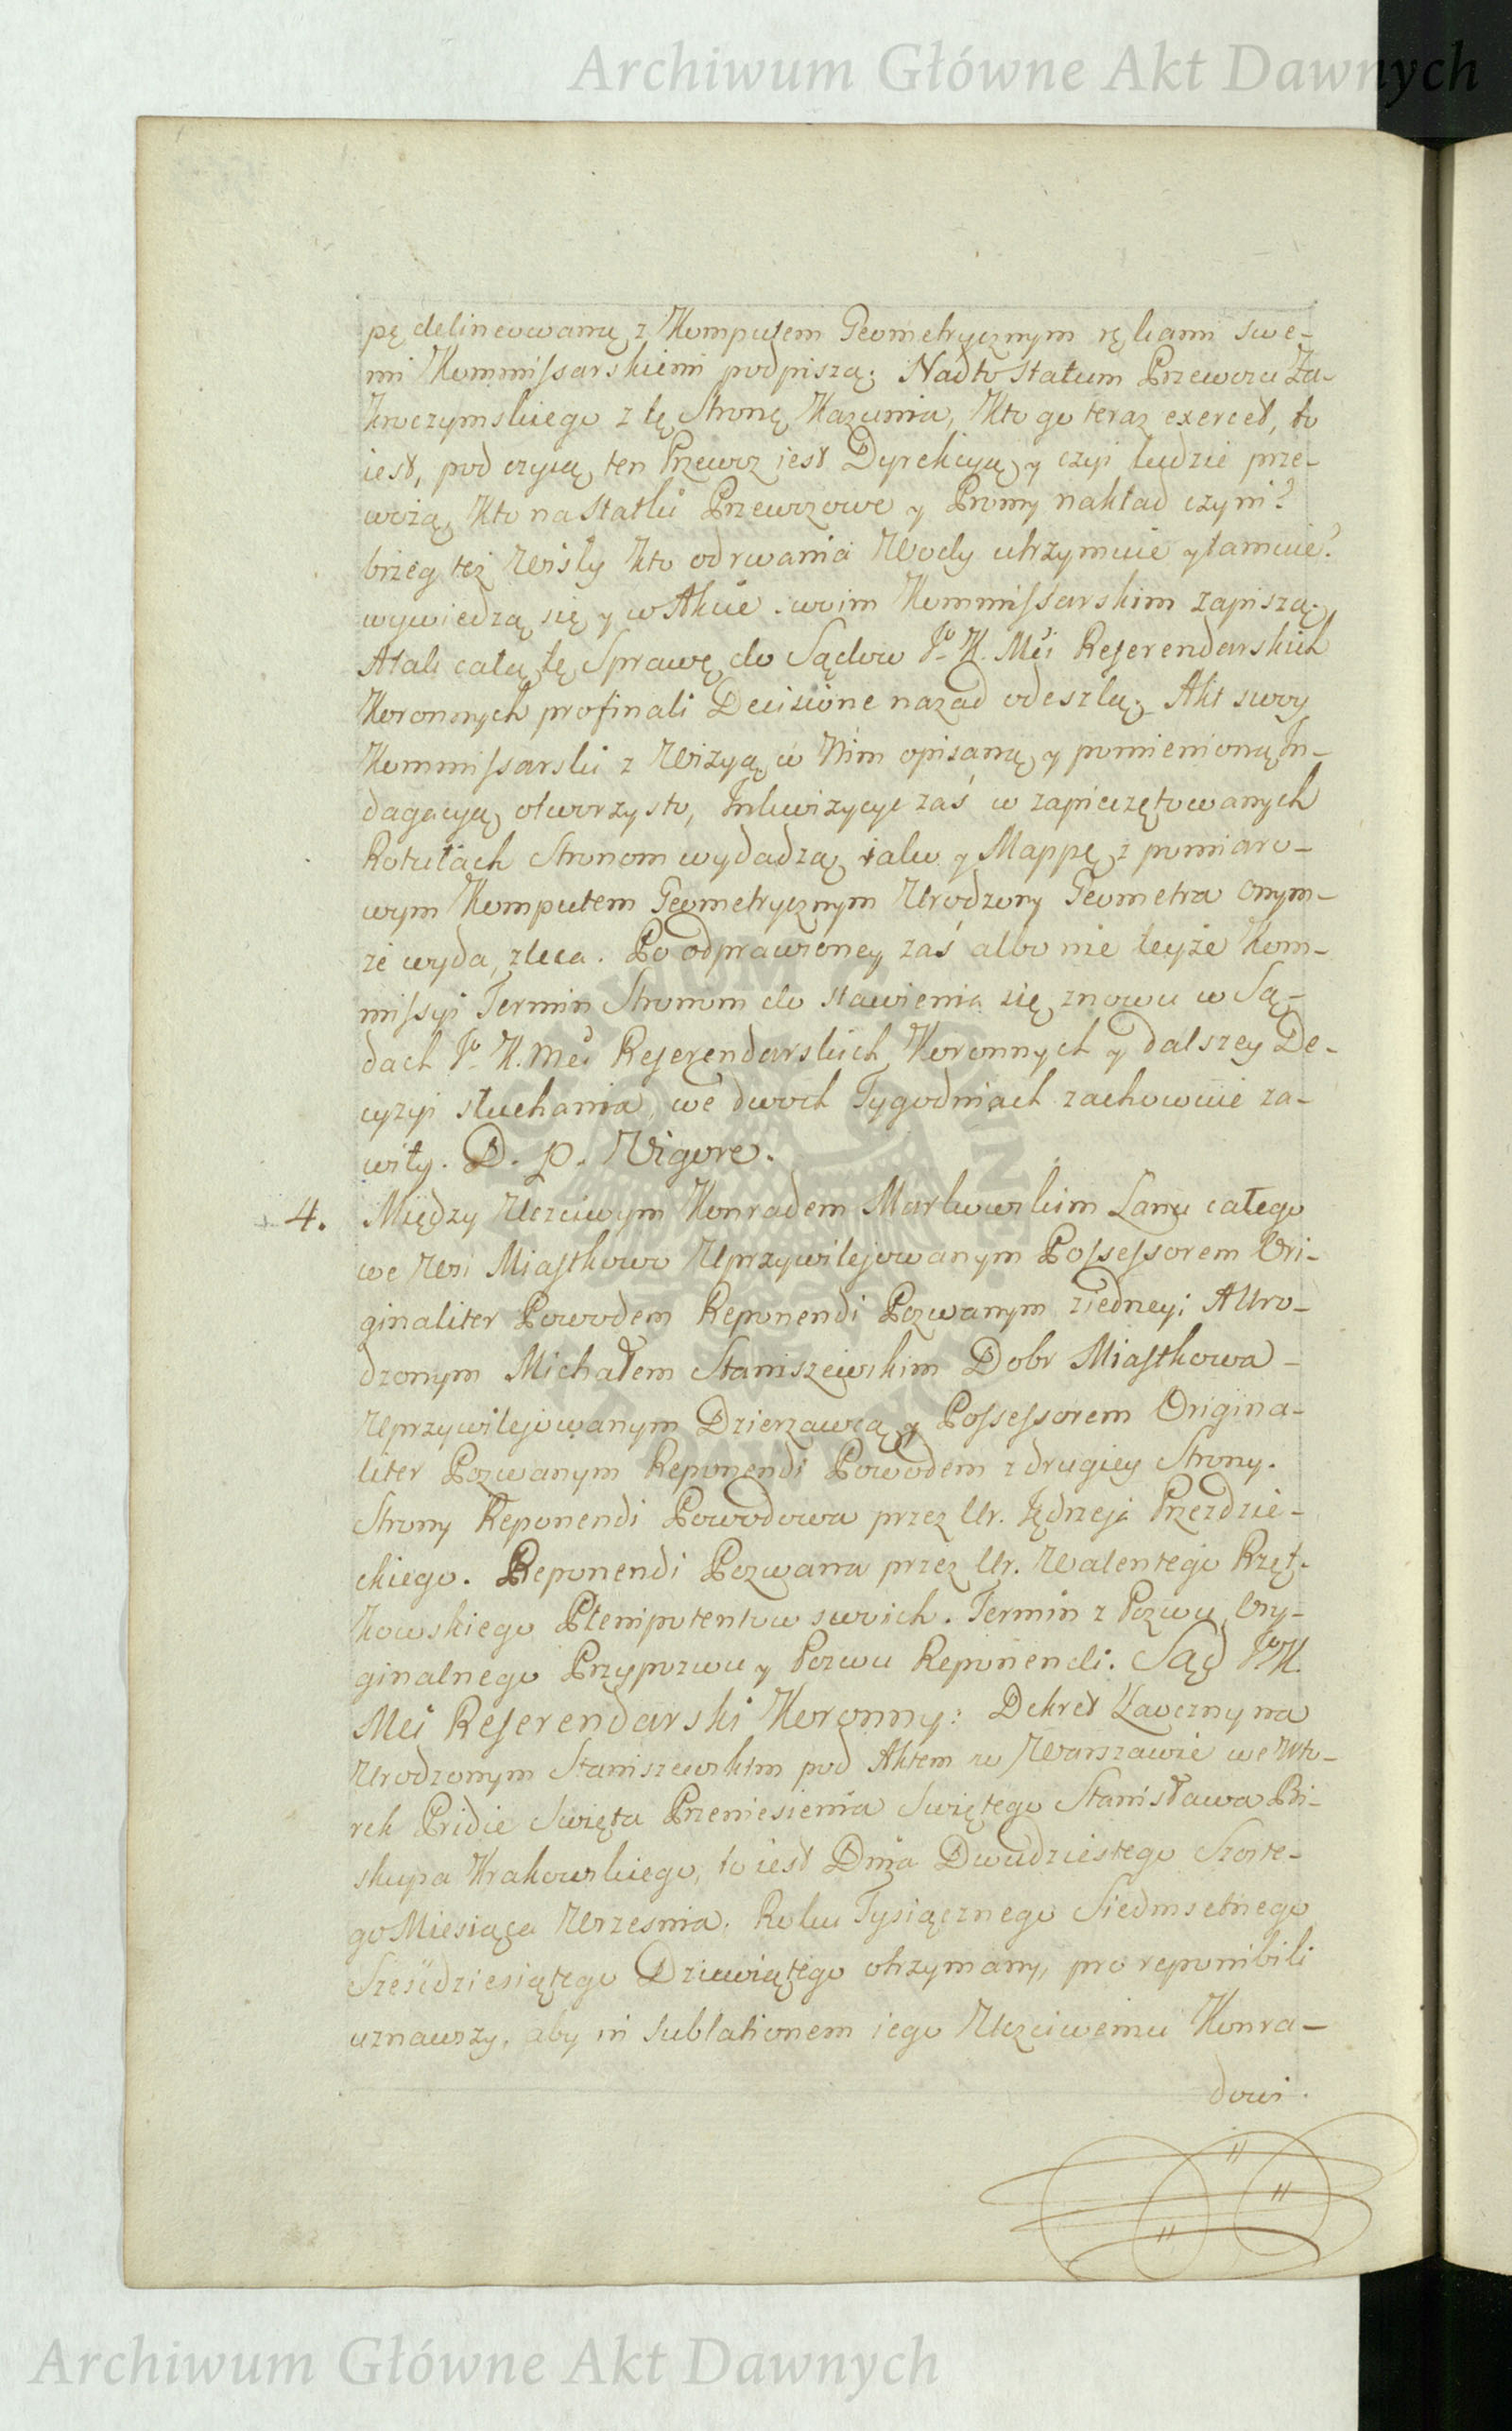 Archiwum Główne Akt Dawnych
pę delineowaną z Komputem Geometrycznym rękami swe-
mi Kommissarskiemi podpiszą. Nadto statum Przewozu Za-
kroczymskiego z tę Stronę Kazunia, Kto go teraz exercet, to
iest, pod czyią ten Przewoz iest Dyrekcyą y czyi ludzie prze-
wożą, Kto na statki Przewozowe y Promy nakład czyni?
brzeg też Wisły Kto od rwania Wody utrzymuie y tamuie?
wywiedzą się y w Akcie swoim Kommissarskim zapiszą;
A tak całą tę Sprawę do Sądow Jo K. Mci Referendarskich
Koronnych pro finali Decisione nazad odeszlą. Akt swoy
Kommissarski z Wizyą w Nim opisaną y pomienioną In-
dagacyą otworzysto, Inkwizycye zaś w zapieczętowanych
Rotułach Stronom wydadzą iako y Mappę z pomiaro-
wym Komputem Geometrycznym Urodzony Geometra onym-
że wyda, zleca. Po odprawioney zaś albo nie teyże Kom-
missyi Termin Stronom do stawienia się znowu w Są-
dach Jo K. Mci Referendarskich Koronnych y dalszey De-
cyzyi słuchania we dwoch Tygodniach zachowuie za-
wity. D. p. Vigore.
4. Między Uczciwym Konradem Markowskim Łanu całego
we Wsi Miastkowo Uprzywilejowanym Possessorem Ori-
ginaliter Powodem Reponendi Pozwanym z iedney; A Uro-
dzonym Michałem Staniszewskim Dobr Miastkowa
Uprzywilejowanym Dzierzawcą y Possessorem Origina-
liter Pozwanym Reponendi Powodem z drugiey Strony.
Strony Reponendi Powodowa przez Ur. Jędrzeja Przezdzie-
ckiego. Reponendi Pozwana przez Ur. Walentego Rzęt-
kowskiego Plenipotentow swoich. Termin z Pozwu Ory-
ginalnego Przypozwu y Pozwu Reponendi. Sąd Jo K.
Mci Referendarski Koronny: Dekret Zaoczny na
Urodzonym Staniszewskim pod Aktem w Warszawie we Wto-
rek Pridie Swięta Przeniesienia Swiętego Stanisława Bi-
skupa Krakowskiego, to iest Dnia Dwudziestego Szoste-
go Miesiąca Wrzesnia, Roku Tysiącznego Siedmsetnego
Sześćdziesiątego Dziewiątego otrzymany, pro reponibili
uznawszy, aby in sublationem iego Uczciwemu Konra-
dowi.
Archiwum Główne Akt Dawnych